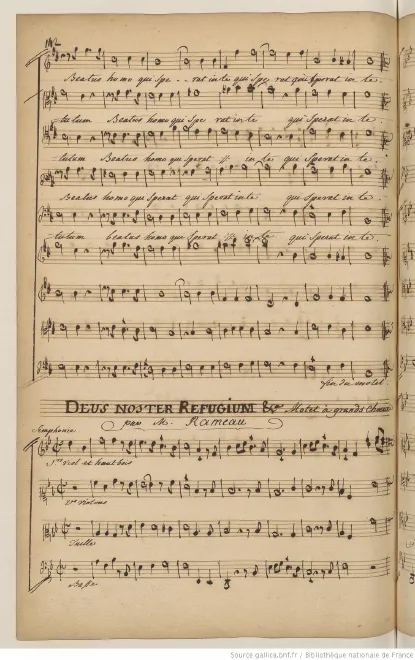 142
Beatus homo qui spe - - rat in te qui spe rat qui sperat in te.
tutum Beatus homo qui spe rat in te qui sperat in te.
tutum Beatus homo qui sperat in te qui sperat in te.
Beatus homo qui sperat qui sperat in te qui sperat in te.
tutum beatus homo qui sperat in te qui sperat in te.
fin du motet
DEUS NOSTER REFUGIUM &c. Motet à grands Chœur
par M. Rameau
Symphonie
1ers viol et hautbois
2es violons
Taille
Basse
Source gallica.bnf.fr / Bibliothèque nationale de France